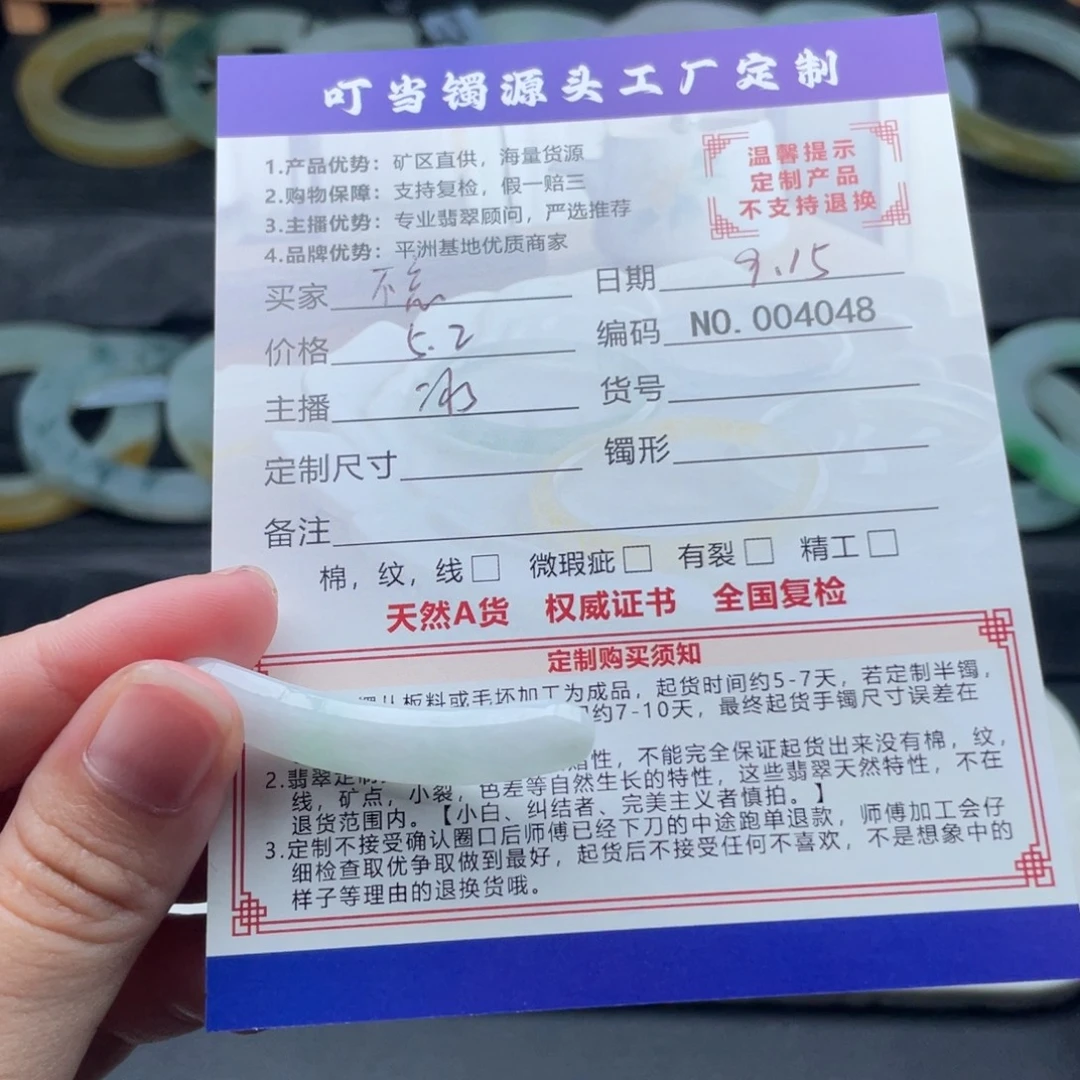 叮当镯源头工厂定制
1.产品优势：矿区直供，海量货源
2.购物保障：支持复检，假一赔三
3.主播优势：专业翡翠顾问，严选推荐
4.品牌优势：平洲基地优质商家
温馨提示
定制产品
不支持退换
买家 日期 9.15
价格 5.2 编码 NO. 004048
主播 冰 货号
定制尺寸 镯形
备注
棉，纹，线□ 微瑕疵□ 有裂□ 精工□
天然A货 权威证书 全国复检
定制购买须知
板料或毛坯加工为成品，起货时间约5-7天，若定制半镯，
约7-10天，最终起货手镯尺寸误差在
性，不能完全保证起货出来没有棉，纹，
2.翡翠定制
线，矿点，小裂，色差等自然生长的特性，这些翡翠天然特性，不在
退货范围内。【小白、纠结者、完美主义者慎拍。】
3.定制不接受确认圈口后师傅已经下刀的中途跑单退款，师傅加工会仔
细检查取优争取做到最好，起货后不接受任何不喜欢，不是想象中的
样子等理由的退换货哦。